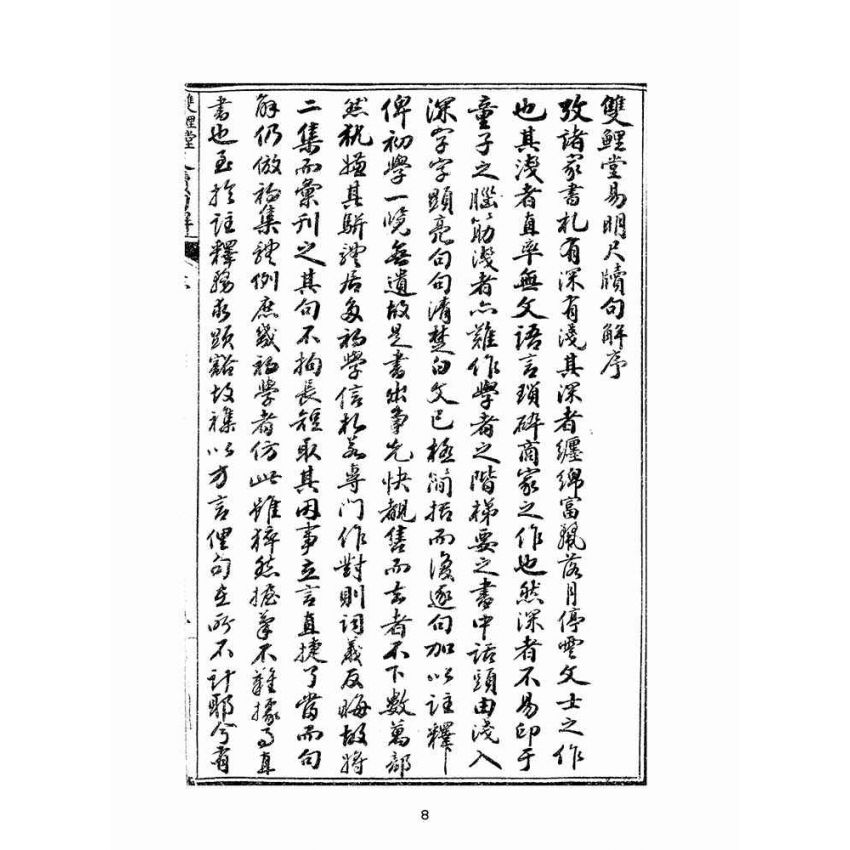 雙鯉堂易明尺牘句解序
攷諸家書札有深有淺其深者纏綿富觀落月停雲文士之作
也其淺者直率無文語言瑣碎商家之作也然深者不易印于
童子之腦筋淺者亦難作學者之階梯要之書中話頭由淺入
深字字顯亮句句清楚白文已極簡括而復逐句加以註釋
俾初學一覽無遺故是書出爭先快覩售而去者不下數萬部
然猶嫌其駢體居多初學信札若專門作對則詞義反晦故將
二集而彙刊之其句不拘長短取其因事立言直捷了當而句
解仍倣初集體例庶幾初學者仿此雖猝然握筆不難據事直
書也至於註釋務求顯豁故襍以方言俚句在所不計耶今有
雙鯉堂尺牘句解
8